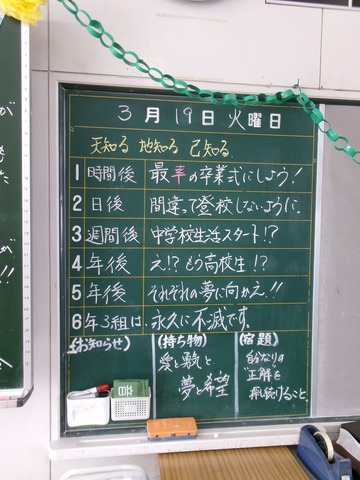 3月19日火曜日
天知る 地知る 己知る
1時間後 最幸の卒業式にしよう!
2日後 間違って登校しないように。
3週間後 中学校生活スタート!?
4年後 え!?もう高校生!?
5年後 それぞれの夢に向かえ!!
6年3組は、永久に不滅です。
(お知らせ)
(持ち物)
愛と
夢と希望
(宿題)
自分なりの
"正解"を
探し続けること。
音